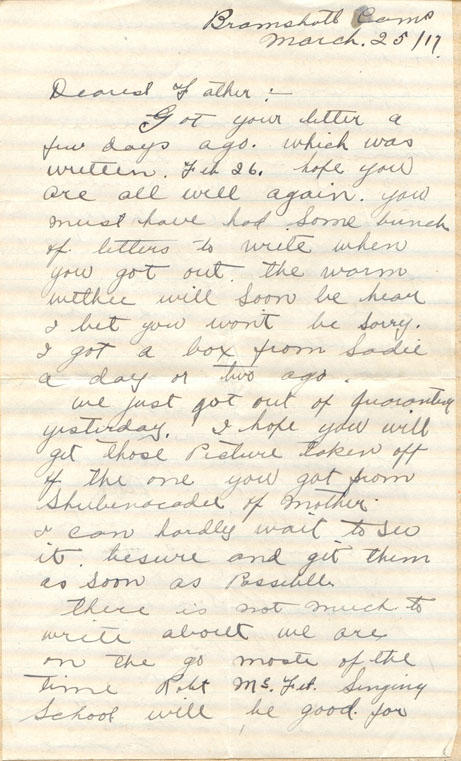 Bramshott Camp
March. 25/17
Dearest Father :-
Got your letter a
few days ago. which was
written. Feb 26. hope you
are all well again. you
must have had some bunch
of letters to write when
you got out. the warm
wether will soon be hear
I bet you wont be sorry.
I got a box from Sadie
a day or two ago.
we just got out of quarantey
yesterday. I hope you will
get those Picture taken off
of the one you got from
Shubenacadee of Mother.
I can hardly wait to see
it. besure and get them
as soon as Possible.
there is not much to
write about we are
on the go moste of the
time Robt Mc. Singing
School will be good for